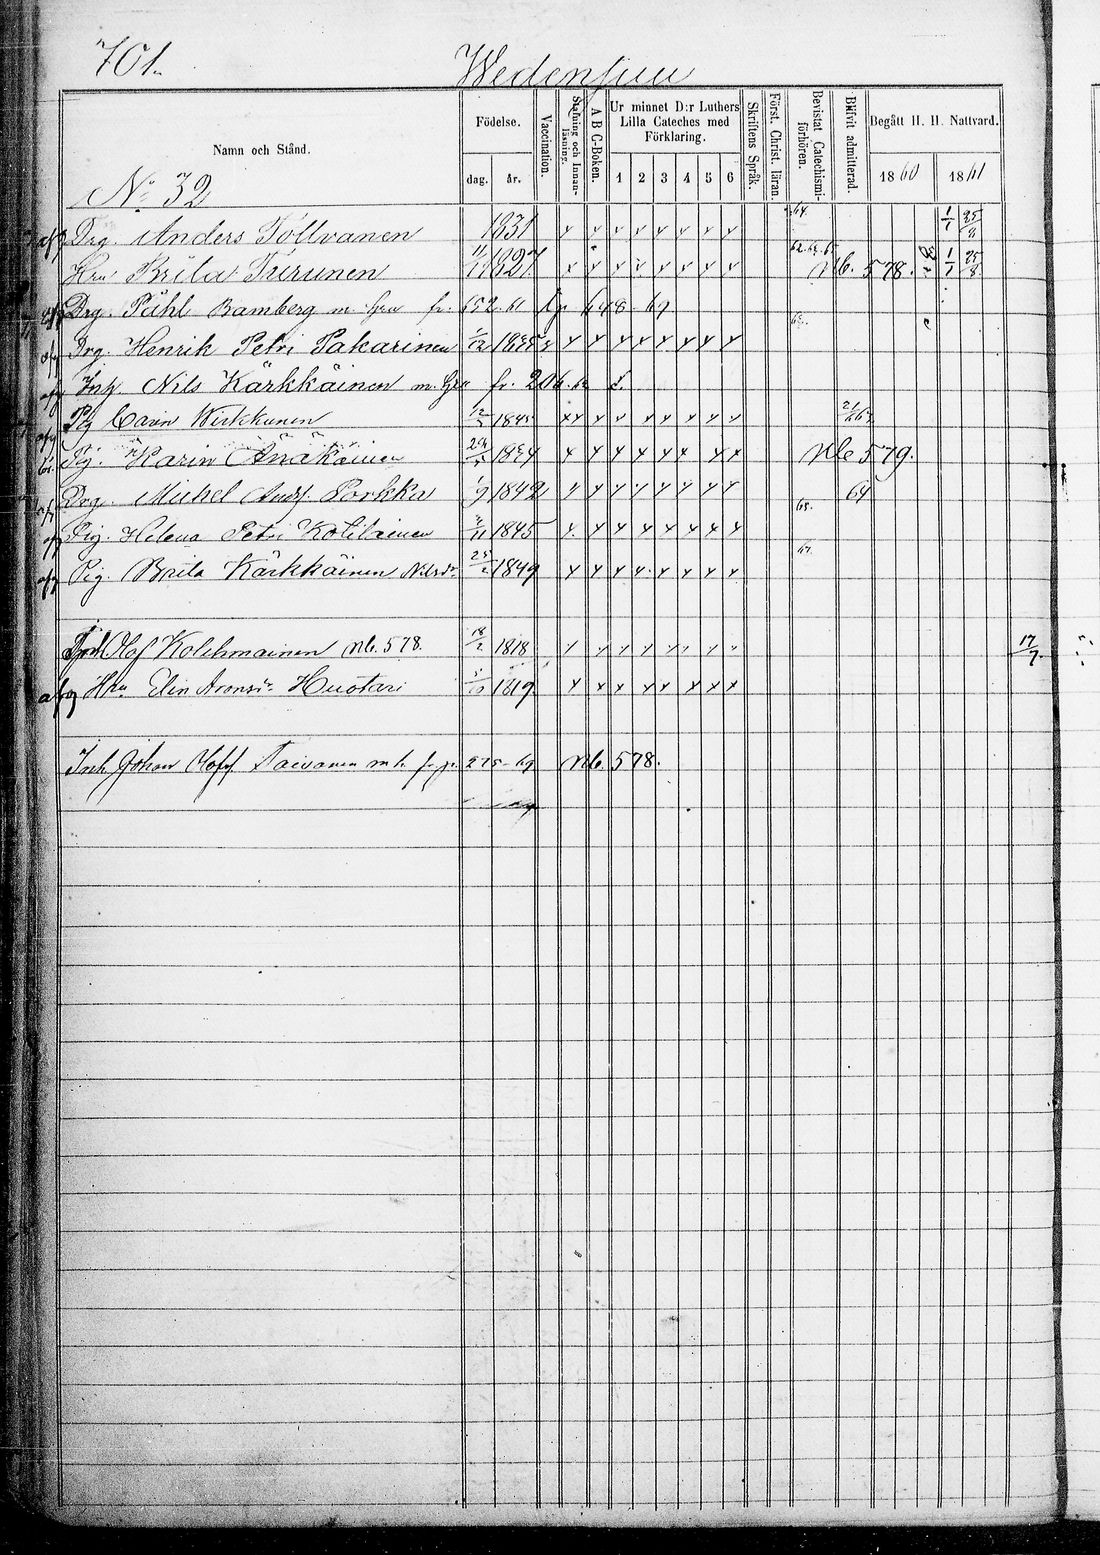 701.
Wedensuu
Namn och Stånd.
Födelse.
dag.
år.
Vaccination.
Stafning och Innanläsning.
A B C-Boken.
Ur minnet D:r Luthers Lilla Cateches med Förklaring.
1 2 3 4 5 6
Skriftens Språk.
Först. Christ. läran.
Bevistat Catechismiförhören.
Blifvit admitterad.
Begått H. H. Nattvard.
1860 1861
No 32
afg Drg. Anders Tollvanen 1831 x x x x x x x x 64. 1/7 25/8
Hru Brita Turunen 11/11 1827 x x x x x x x x 62. 63. 65 Nb. 578. 1/7 25/8
Drg. Påhl Bamberg m. hru fr. 152. 61 648 - 69
afg Drg. Henrik Petri Pakarinen 1/12 1835 x x x x x x x x 63.
afg Inh. Nils Kärkkäinen m. hru fr. 206. 62
afg Pig Carin Wirkkunen 12/5 1845 xx x x x x x x 21/6 62
Pig. Karin Änäkäinen 24/5 1834 x x x x x x x x Nb 579.
Drg. Mickel Andf. Porkka 1/9 1842 x x x x x x x x 64
afg Pig. Helena Petri Kotilainen 3/11 1845 x x x x x x x x 65.
afg Pig. Brita Kärkkäinen Nilsdr 25/2 1849 x x x x x x x x 67.
Inh Olof Kolehmainen Nb. 578. 18/2 1818 x x x x x x x x 17/7.
afg Hru Elin Aronsdr Huotari 5/10 1819. x x x x x x x x
Inh Johan Olofsf. Toivanen m h fr. p. 275 - 69 Nb. 578.